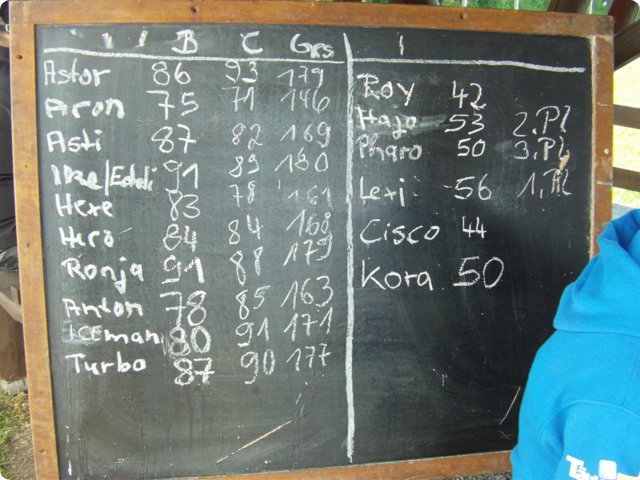 B C Ges
Astor 86 93 179
Aron 75 71 146
Asti 87 82 169
Ike/Eddi 91 89 180
Hexe 83 78 161
Hero 84 84 168
Ronja 91 88 179
Anton 78 85 163
ICEman 80 91 171
Turbo 87 90 177
1
Roy 42
Hajo 53 2.Pl
Pharo 50 3.Pl
Lexi 56 1.Pl
Cisco 44
Kora 50